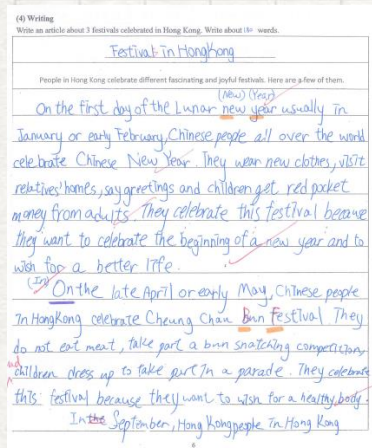 (4) Writing
Write an article about 3 festivals celebrated in Hong Kong. Write about 150 words.
Festival in HongKong
People in Hong Kong celebrate different fascinating and joyful festivals. Here are a few of them.
(New) (Year)
On the first day of the Lunar new year usually in
January or early February, Chinese people all over the world
celebrate Chinese New Year. They wear new clothes, visit
relatives' homes, say greetings and children get red pocket
money from adults. They celebrate this festival because
they want to celebrate the beginning of a new year and to
wish for a better life.
(In)
On the late April or early May, Chinese people
in HongKong celebrate Cheung Chau Bun Festival. They
do not eat meat, take part a bun snatching competition,
and
children dress up to take part in a parade. They celebrate
this festival because they want to wish for a healthy body.
In the September, Hong Kong people in Hong Kong